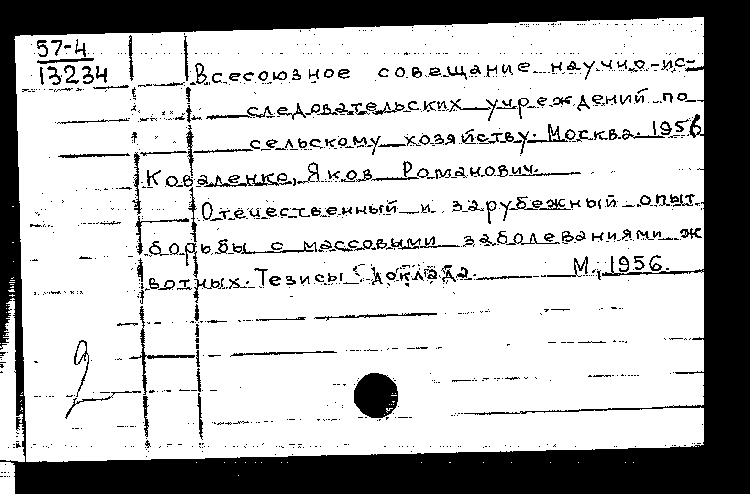 57-4
13234
Всесоюзное совещание научно-ис-
следовательских учреждений по
сельскому хозяйству. Москва. 1956
Коваленко, Яков Романович.
Отечественный и зарубежный опыт
борьбы с массовыми заболеваниями ж
вотных. Тезисы доклада. М., 1956.
2